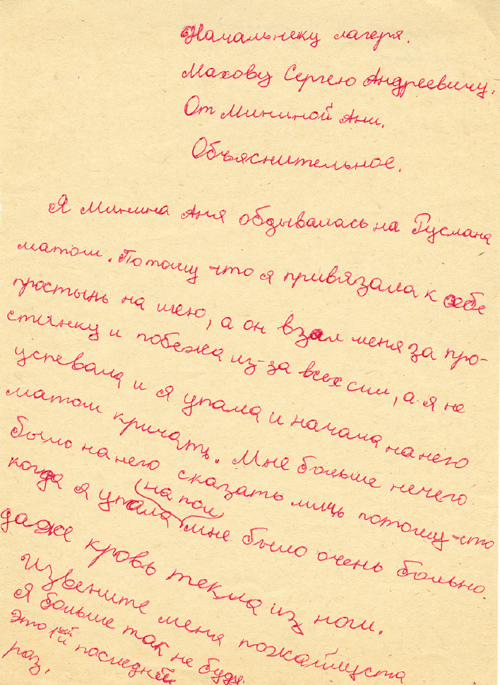 Начальнеку лагеря.
Махову Сергею Андреевичу.
От Мининой Ани.
Объяснительное.
Я Минина Аня обдывалась на Руслана
матом. Потому что я привязала к себе
простынь на шею, а он взял меня за про-
стынку и побежа из-за всех сил, а я не
успевала и я упала и начала на него
матом кричать. Мне больше нечего
было на него сказать лишь потому-что
когда я упала (на пол) мне было очень больно.
даже кровь текла из ноги.
Извените меня пожайлуста
Я больше так не буду
это мой последней
раз.